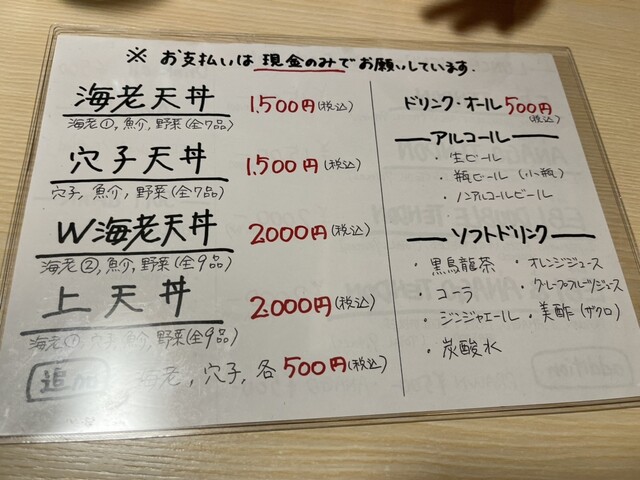 ※ お支払いは現金のみでお願いしています.
海老天丼 1.500円(税込)
海老①, 魚介, 野菜(全7品)
穴子天丼 1.500円(税込)
穴子, 魚介, 野菜(全7品)
W海老天丼 2.000円(税込)
海老②, 魚介, 野菜(全9品)
上天丼 2.000円(税込)
海老①, 穴子, 魚介, 野菜(全9品)
追加 海老, 穴子, 各500円(税込)
ドリンク・オール500円(税込)
アルコール
・生ビール
・瓶ビール (小瓶)
・ノンアルコールビール
ソフトドリンク
・黒烏龍茶 ・オレンジジュース
・コーラ ・グレープフルーツジュース
・ジンジャエール ・美酢(ザクロ)
・炭酸水